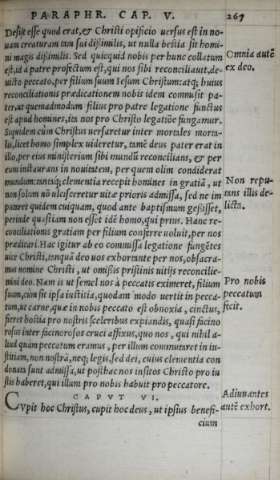 PARAPHR. CAP. V. 267
Desijt esse quod erat, & Christi opificio uersus est in no-
uam creaturam tam sui dissimilis, ut nulla bestia sit homi-
ni magis dissimilis. Sed quicquid nobis per hunc collatum
est, id à patre profectum est, qui nos sibi reconciliauit, de-
uicto peccato, per filium suum Iesum Christum: atq; huius
reconciliationis prædicationem nobis idem commisit pa-
ter, ut quemadmodum filius pro patre legatione functus
est apud homines, ita nos pro Christo legatiōe fungamur.
Siquidem cùm Christus uersaretur inter mortales morta-
lis, licet homo simplex uideretur, tamē deus pater erat in
illo, per eius ministerium sibi mundū reconcilians, & per
eum instaurans in nouitatem, per quem olim condiderat
mundum: tantaq; clementia recepit homines in gratiā, ut
non solum nō ulcisceretur uitæ prioris admissa, sed ne im
putaret quidem cuiquam, quod ante baptismum gessisset,
perinde quasi iam non esset idē homo, qui prius. Hanc re-
conciliationis gratiam per filium conferre uoluit, per nos
prædicari. Hac igitur ab eo commissa legatione fungētes
uice Christi, tanquā deo uos exhortante per nos, obsecra-
mus nomine Christi, ut omissis pristinis uitijs reconcilie-
mini deo. Nam is ut semel nos à peccatis eximeret, filium
suum, cùm sit ipsa iustitia, quodam modo uertit in pecca-
tum, ut carne, quæ in nobis peccato est obnoxia, cinctus,
fieret hostia pro nostris sceleribus expiandis, quasi facino
rosus inter facinorosos cruci affixus, quo nos, qui nihil a-
liud quàm peccatum eramus, per illum commutaret in iu-
stitiam, non nostrā, neq; legis, sed dei, cuius clementia con
donata sunt admissa, ut posthac nos insitos Christo pro iu
stis haberet, qui illum pro nobis habuit pro peccatore.
CAPVT VI.
CVpit hoc Christus, cupit hoc deus, ut ipsius benefi-
cium
Omnia autē
ex deo.
Non repu-
tans illis de-
licta.
Pro nobis
peccatum
fecit.
Adiuuantes
autē exhort.